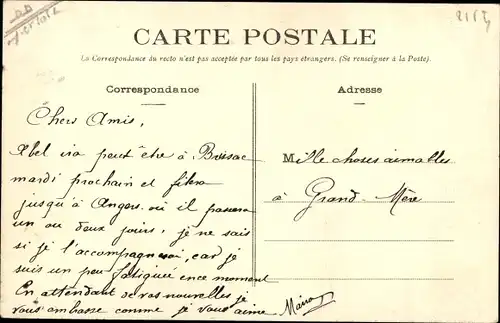 CARTE POSTALE
La Correspondance du recto n'est pas acceptée par tous les pays étrangers. (Se renseigner à la Poste).
Correspondance
Adresse
Chers Amis,
Abel ira peut être à Brissac
mardi prochain et filera
jusqu'à Angers où il passera
un ou deux jours, je ne sais
si je l'accompagnerai, car je
suis un peu fatiguée en ce moment
En attendant de vos nouvelles je
vous embrasse comme je vous aime
Mille choses aimables
à Grand-Mère